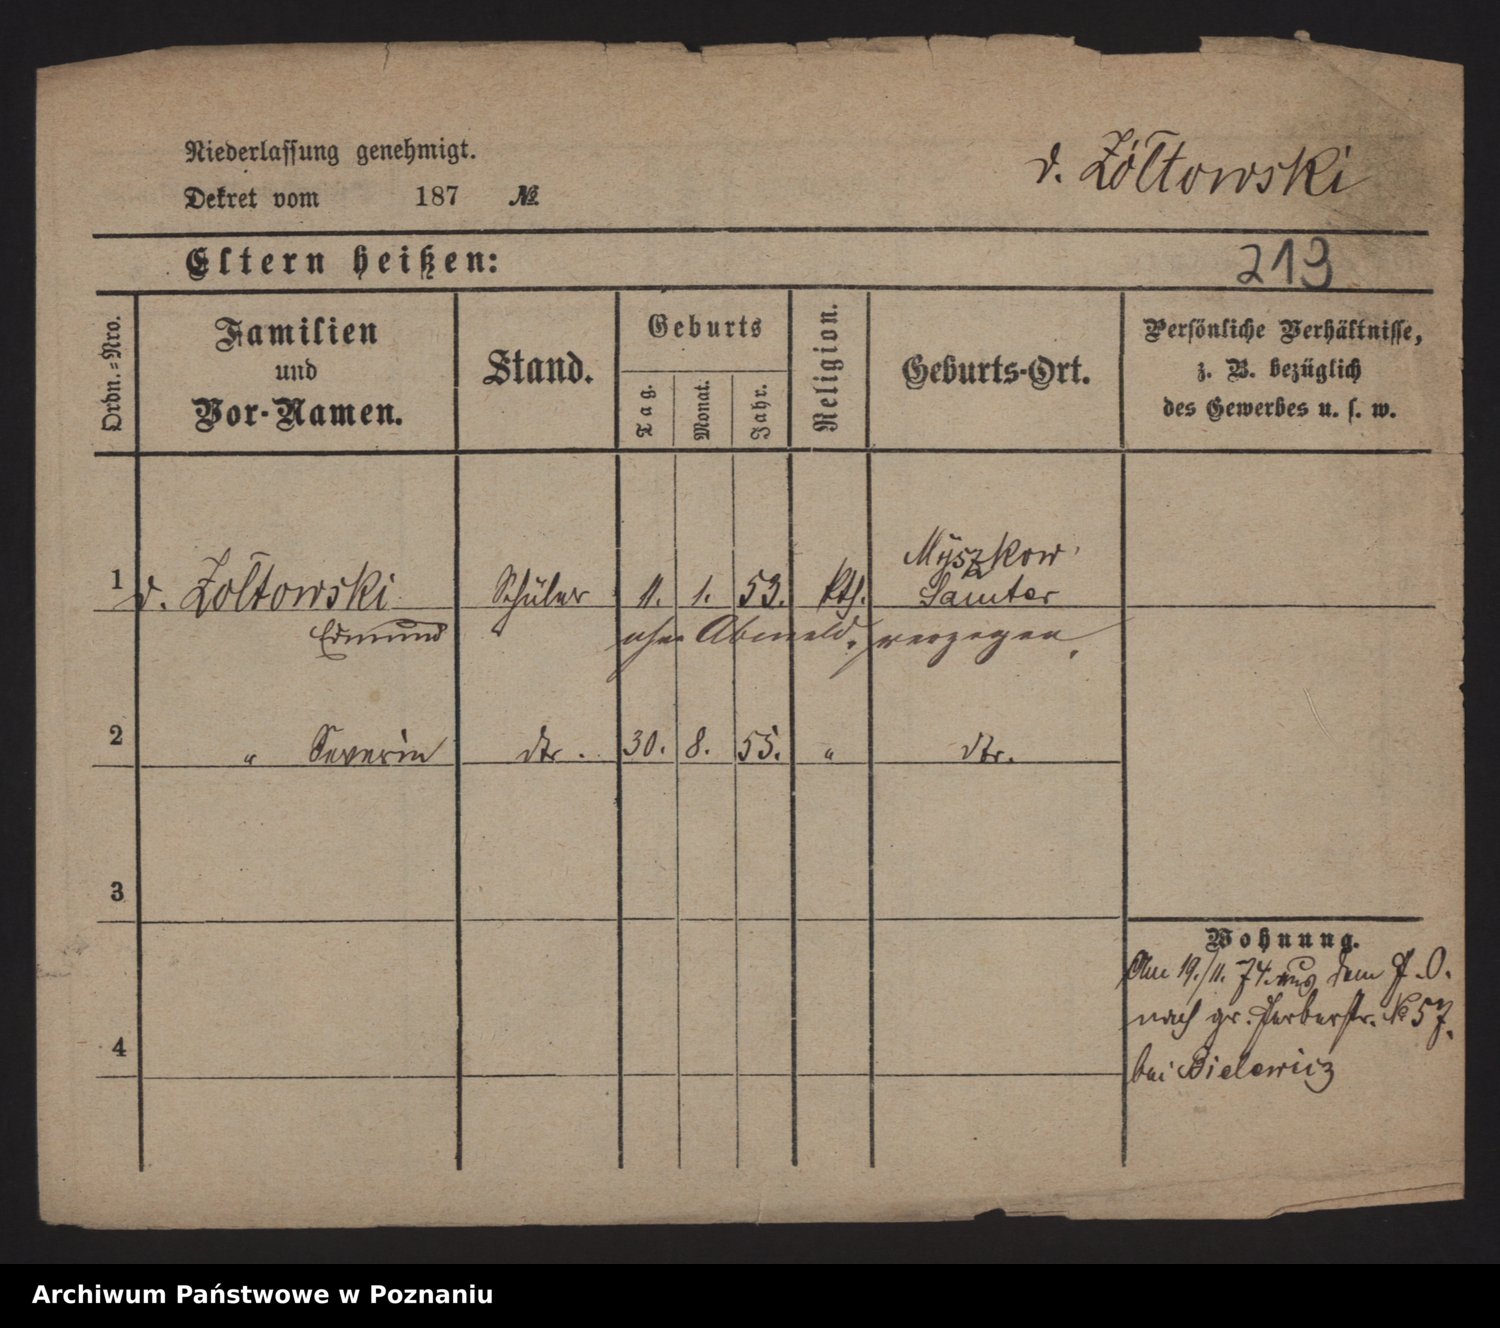 Niederlassung genehmigt.
Dekret vom 187 №
v. Żółtowski
Eltern heißen:
213
Ordn.=Nro.
Familien
und
Vor-Namen.
Stand.
Geburts
Tag.
Monat.
Jahr.
Religion.
Geburts-Ort.
Persönliche Verhältnisse,
z. B. bezüglich
des Gewerbes u. s. w.
Myszkow
1 v. Zoltowski Schüler 11. 1. 53. kth. Samter
Edmund ohne Abmeld. verzogen.
2 " Severin dto. 30. 8. 55. " dto.
3
Wohnung.
Am 19./11. 74. aus dem P. O.
nach gr. Gerberstr. № 57.
4
bei Bielewicz
Archiwum Państwowe w Poznaniu